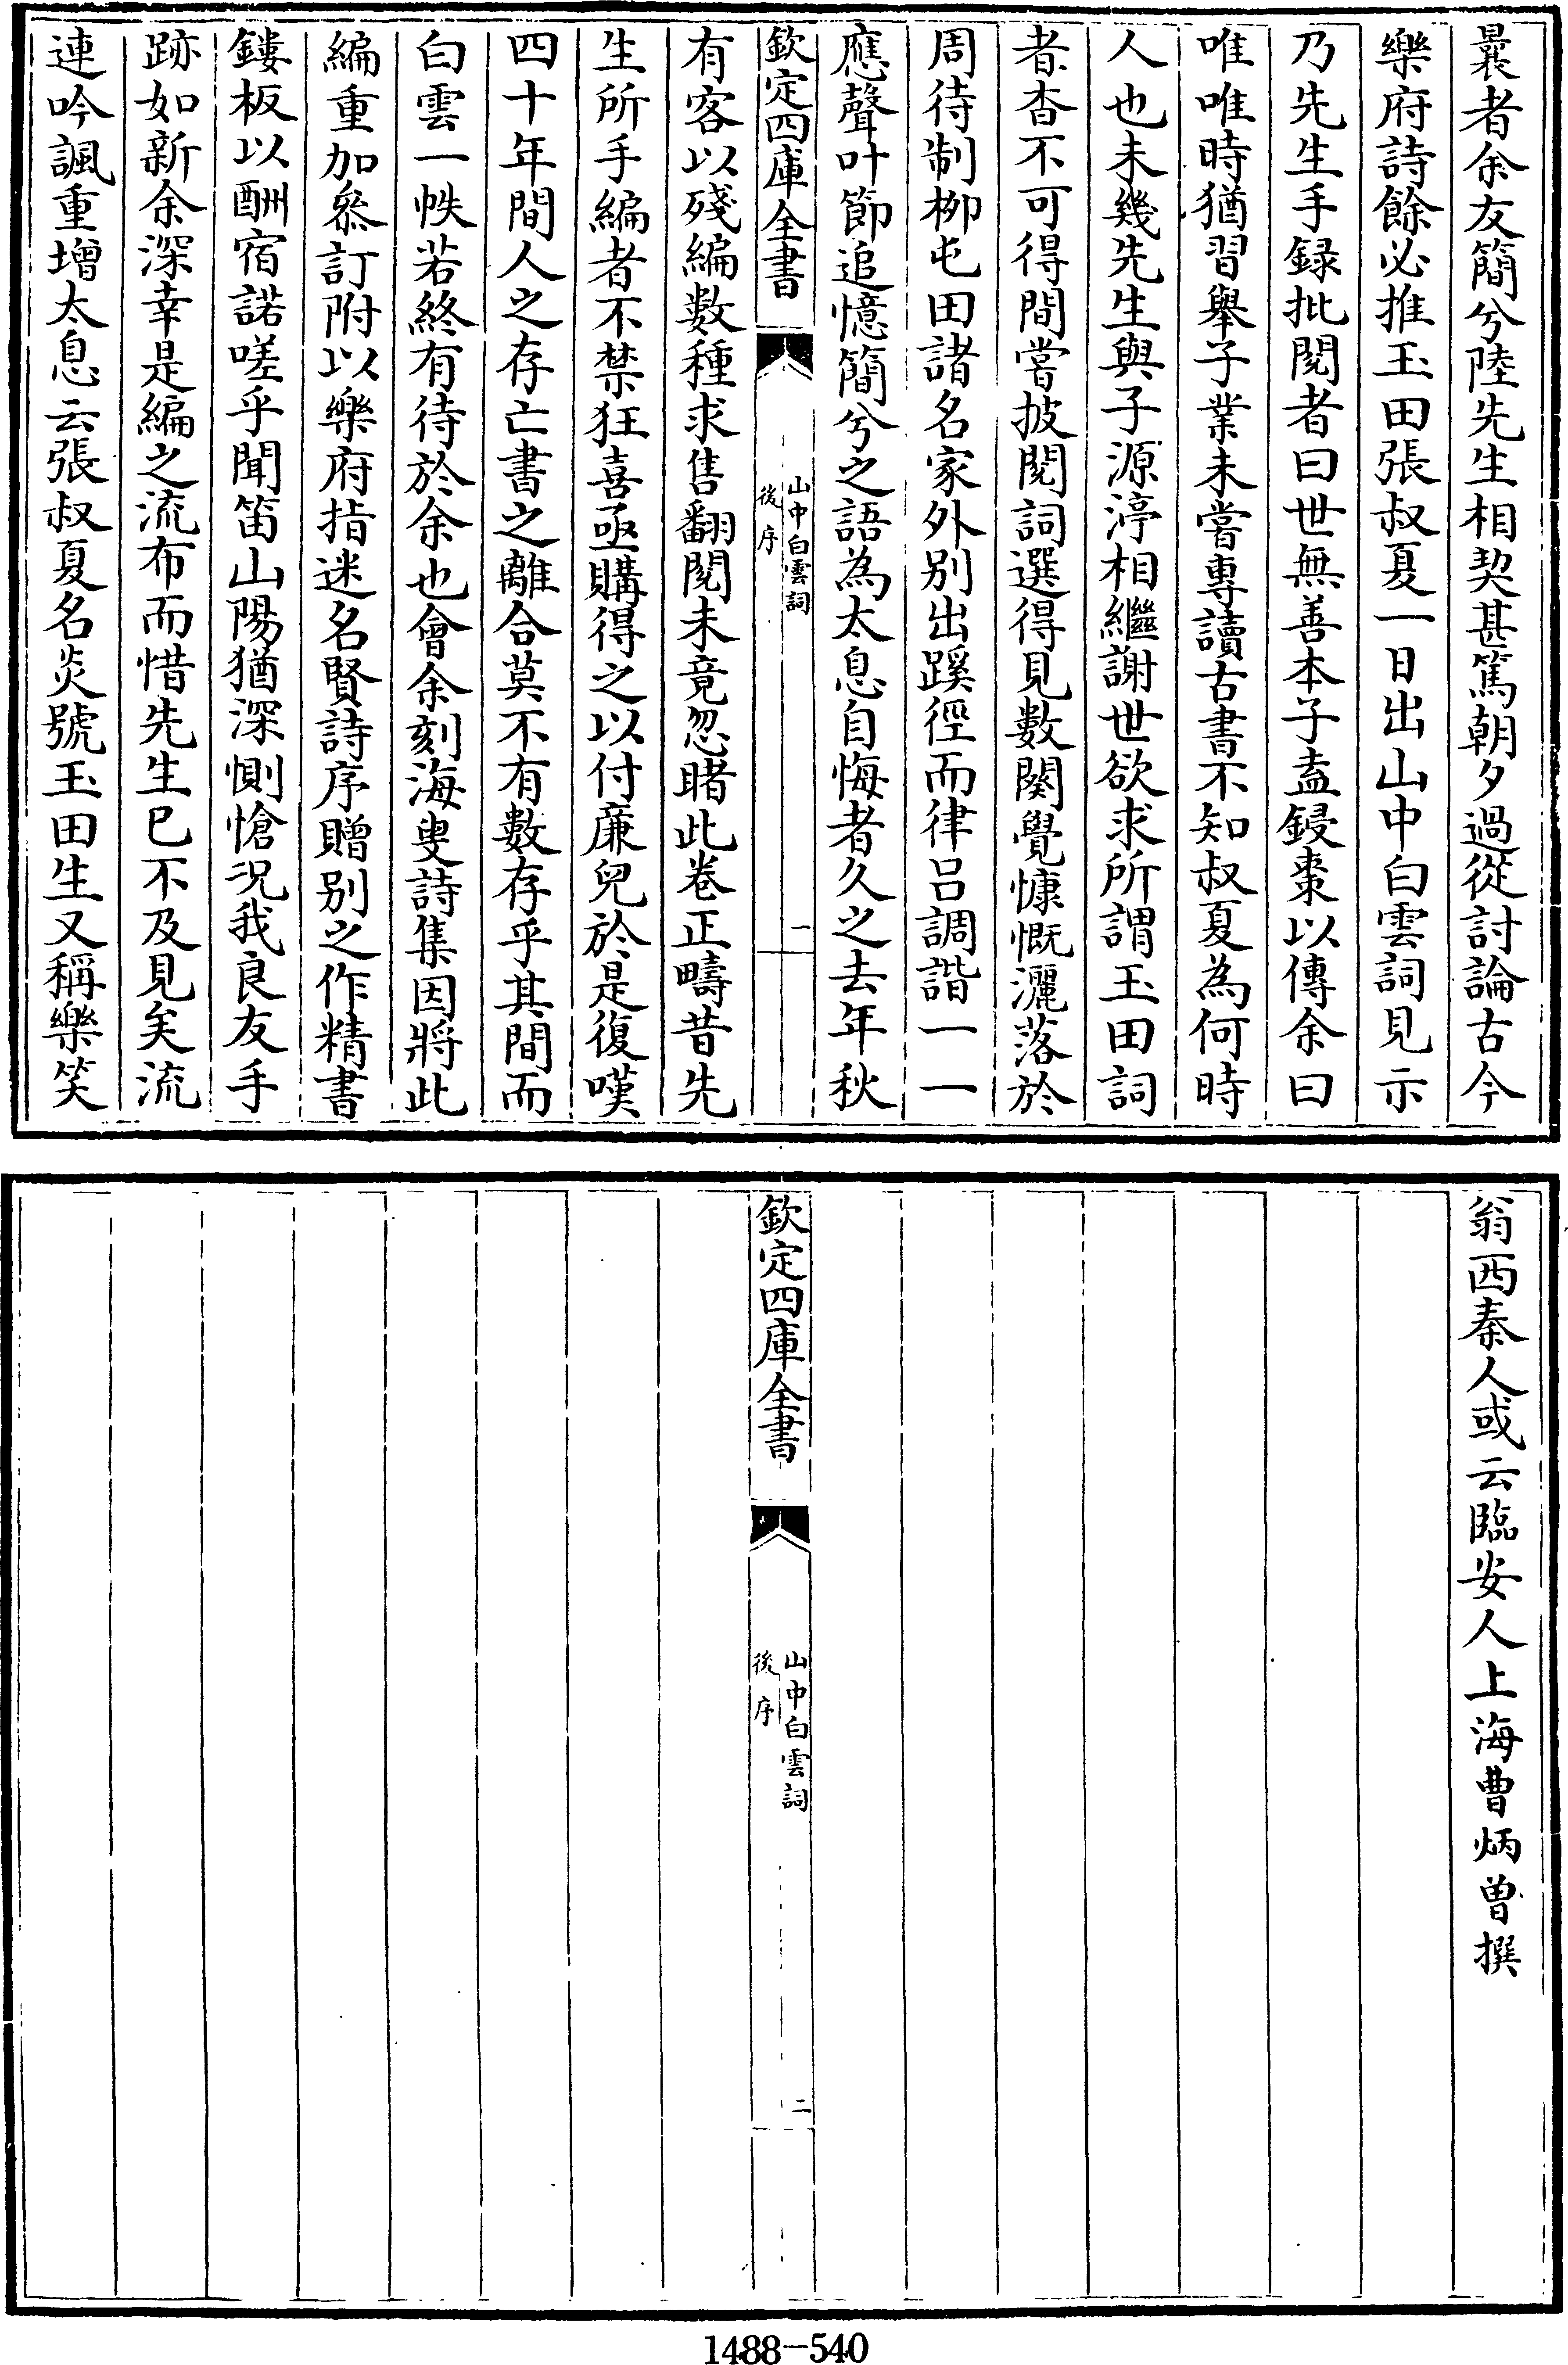 曩者余友簡兮陸先生相契甚篤朝夕過從討論古今
樂府詩餘必推玉田張叔夏一日出山中白雲詞見示
乃先生手録批閱者曰世無善本子盍鋟棗以傳余曰
唯唯時猶習舉子業未嘗專讀古書不知叔夏為何時
人也未幾先生與子源渟相繼謝世欲求所謂玉田詞
者杳不可得間嘗披閱詞選得見數闋覺慷慨灑落於
周待制栁屯田諸名家外别出蹊徑而律吕調諧一一
應聲叶節追憶簡兮之語為太息自悔者久之去年秋
欽定四庫全書
山中白雲詞
後序
一
有客以殘編數種求售翻閱未竟忽睹此卷正疇昔先
生所手編者不禁狂喜亟購得之以付廉兒於是復嘆
四十年間人之存亡書之離合莫不有數存乎其間而
白雲一帙若終有待於余也會余刻海叟詩集因將此
編重加叅訂附以樂府指迷名賢詩序贈别之作精書
鏤板以酬宿諾嗟乎聞笛山陽猶深惻愴况我良友手
跡如新余深幸是編之流布而惜先生已不及見矣流
連吟諷重增太息云張叔夏名炎號玉田生又稱樂笑
翁西秦人或云臨安人上海曹炳曽撰
欽定四庫全書
山中白雲詞
後序
二
1488-540